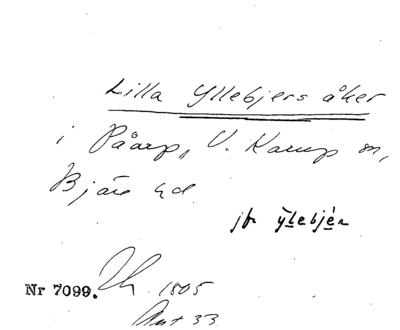 Lilla Yllebjers åker
i Påarp, V. Karup sn,
Bjäre hd.
jfr ÿlebjér
Nr 7099. Jh. 1805
Akt 33